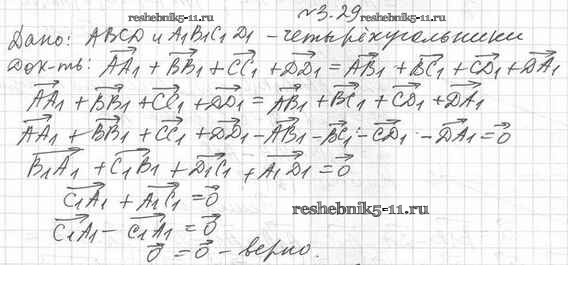 №3.29
reshebnik5-11.ru
Дано: ABCD и A₁B₁C₁D₁ - четырёхугольники
Док-ть: AA₁ + BB₁ + CC₁ + DD₁ = AB₁ + BC₁ + CD₁ + DA₁
AA₁ + BB₁ + CC₁ + DD₁ = AB₁ + BC₁ + CD₁ + DA₁
AA₁ + BB₁ + CC₁ + DD₁ - AB₁ - BC₁ - CD₁ - DA₁ = 0
B₁A₁ + C₁B₁ + D₁C₁ + A₁D₁ = 0
C₁A₁ + A₁C₁ = 0
reshebnik5-11.ru
C₁A₁ - C₁A₁ = 0
0 = 0 - верно.